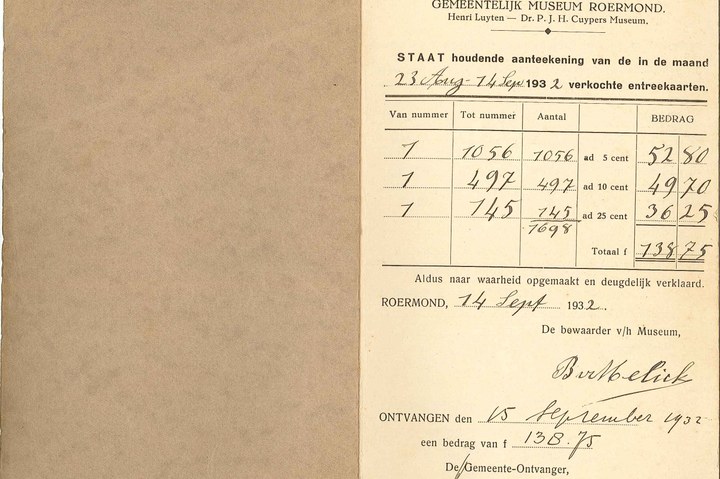 GEMEENTELIJK MUSEUM ROERMOND.
Henri Luyten — Dr. P. J. H. Cuypers Museum.
STAAT houdende aanteekening van de in de maand
23 Aug - 14 Sep 1932 verkochte entreekaarten.
Van nummer Tot nummer Aantal BEDRAG
1 1056 1056 ad 5 cent 52 80
1 497 497 ad 10 cent 49 70
1 145 145 ad 25 cent 36 25
1698
Totaal f 138 75
Aldus naar waarheid opgemaakt en deugdelijk verklaard.
ROERMOND, 14 Sept 1932.
De bewaarder v/h Museum,
ONTVANGEN den 15 September 1932
een bedrag van f 138.75
De Gemeente-Ontvanger,